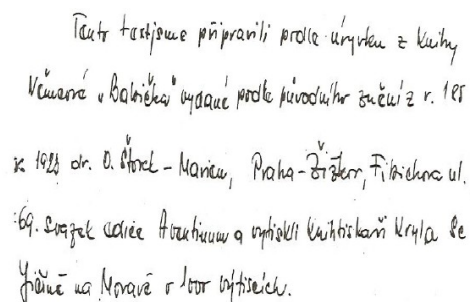 Tento text jsme připravili podle úryvku z knihy
Němcové „Babička“ vydané podle původního znění z r. 185
1924 dr. O. Štorch - Marien, Praha - Žižkov, Fibichova ul.
69. svazek edice Aventinum a vytiskli knihtiskaři Kryl a Sc
Jičíně na Moravě v 1000 výtiscích.